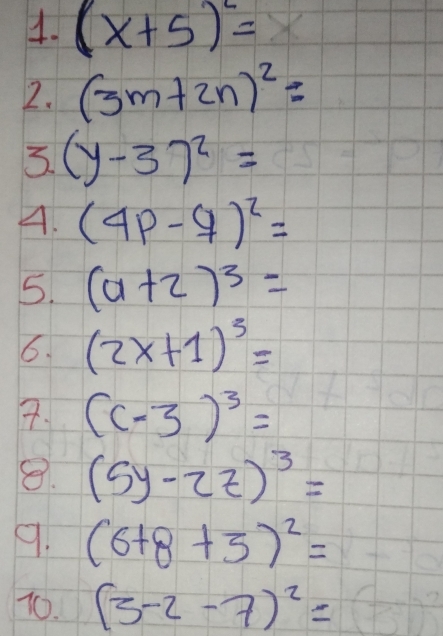 1. (x+5)²= x
2. (3m+2n)²=
3. (y-3)²=
4. (4p-q)²=
5. (a+2)³=
6. (2x+1)³=
7. (c-3)³=
8. (5y-2z)³=
9. (6+8+3)²=
10. (3-2-7)²=